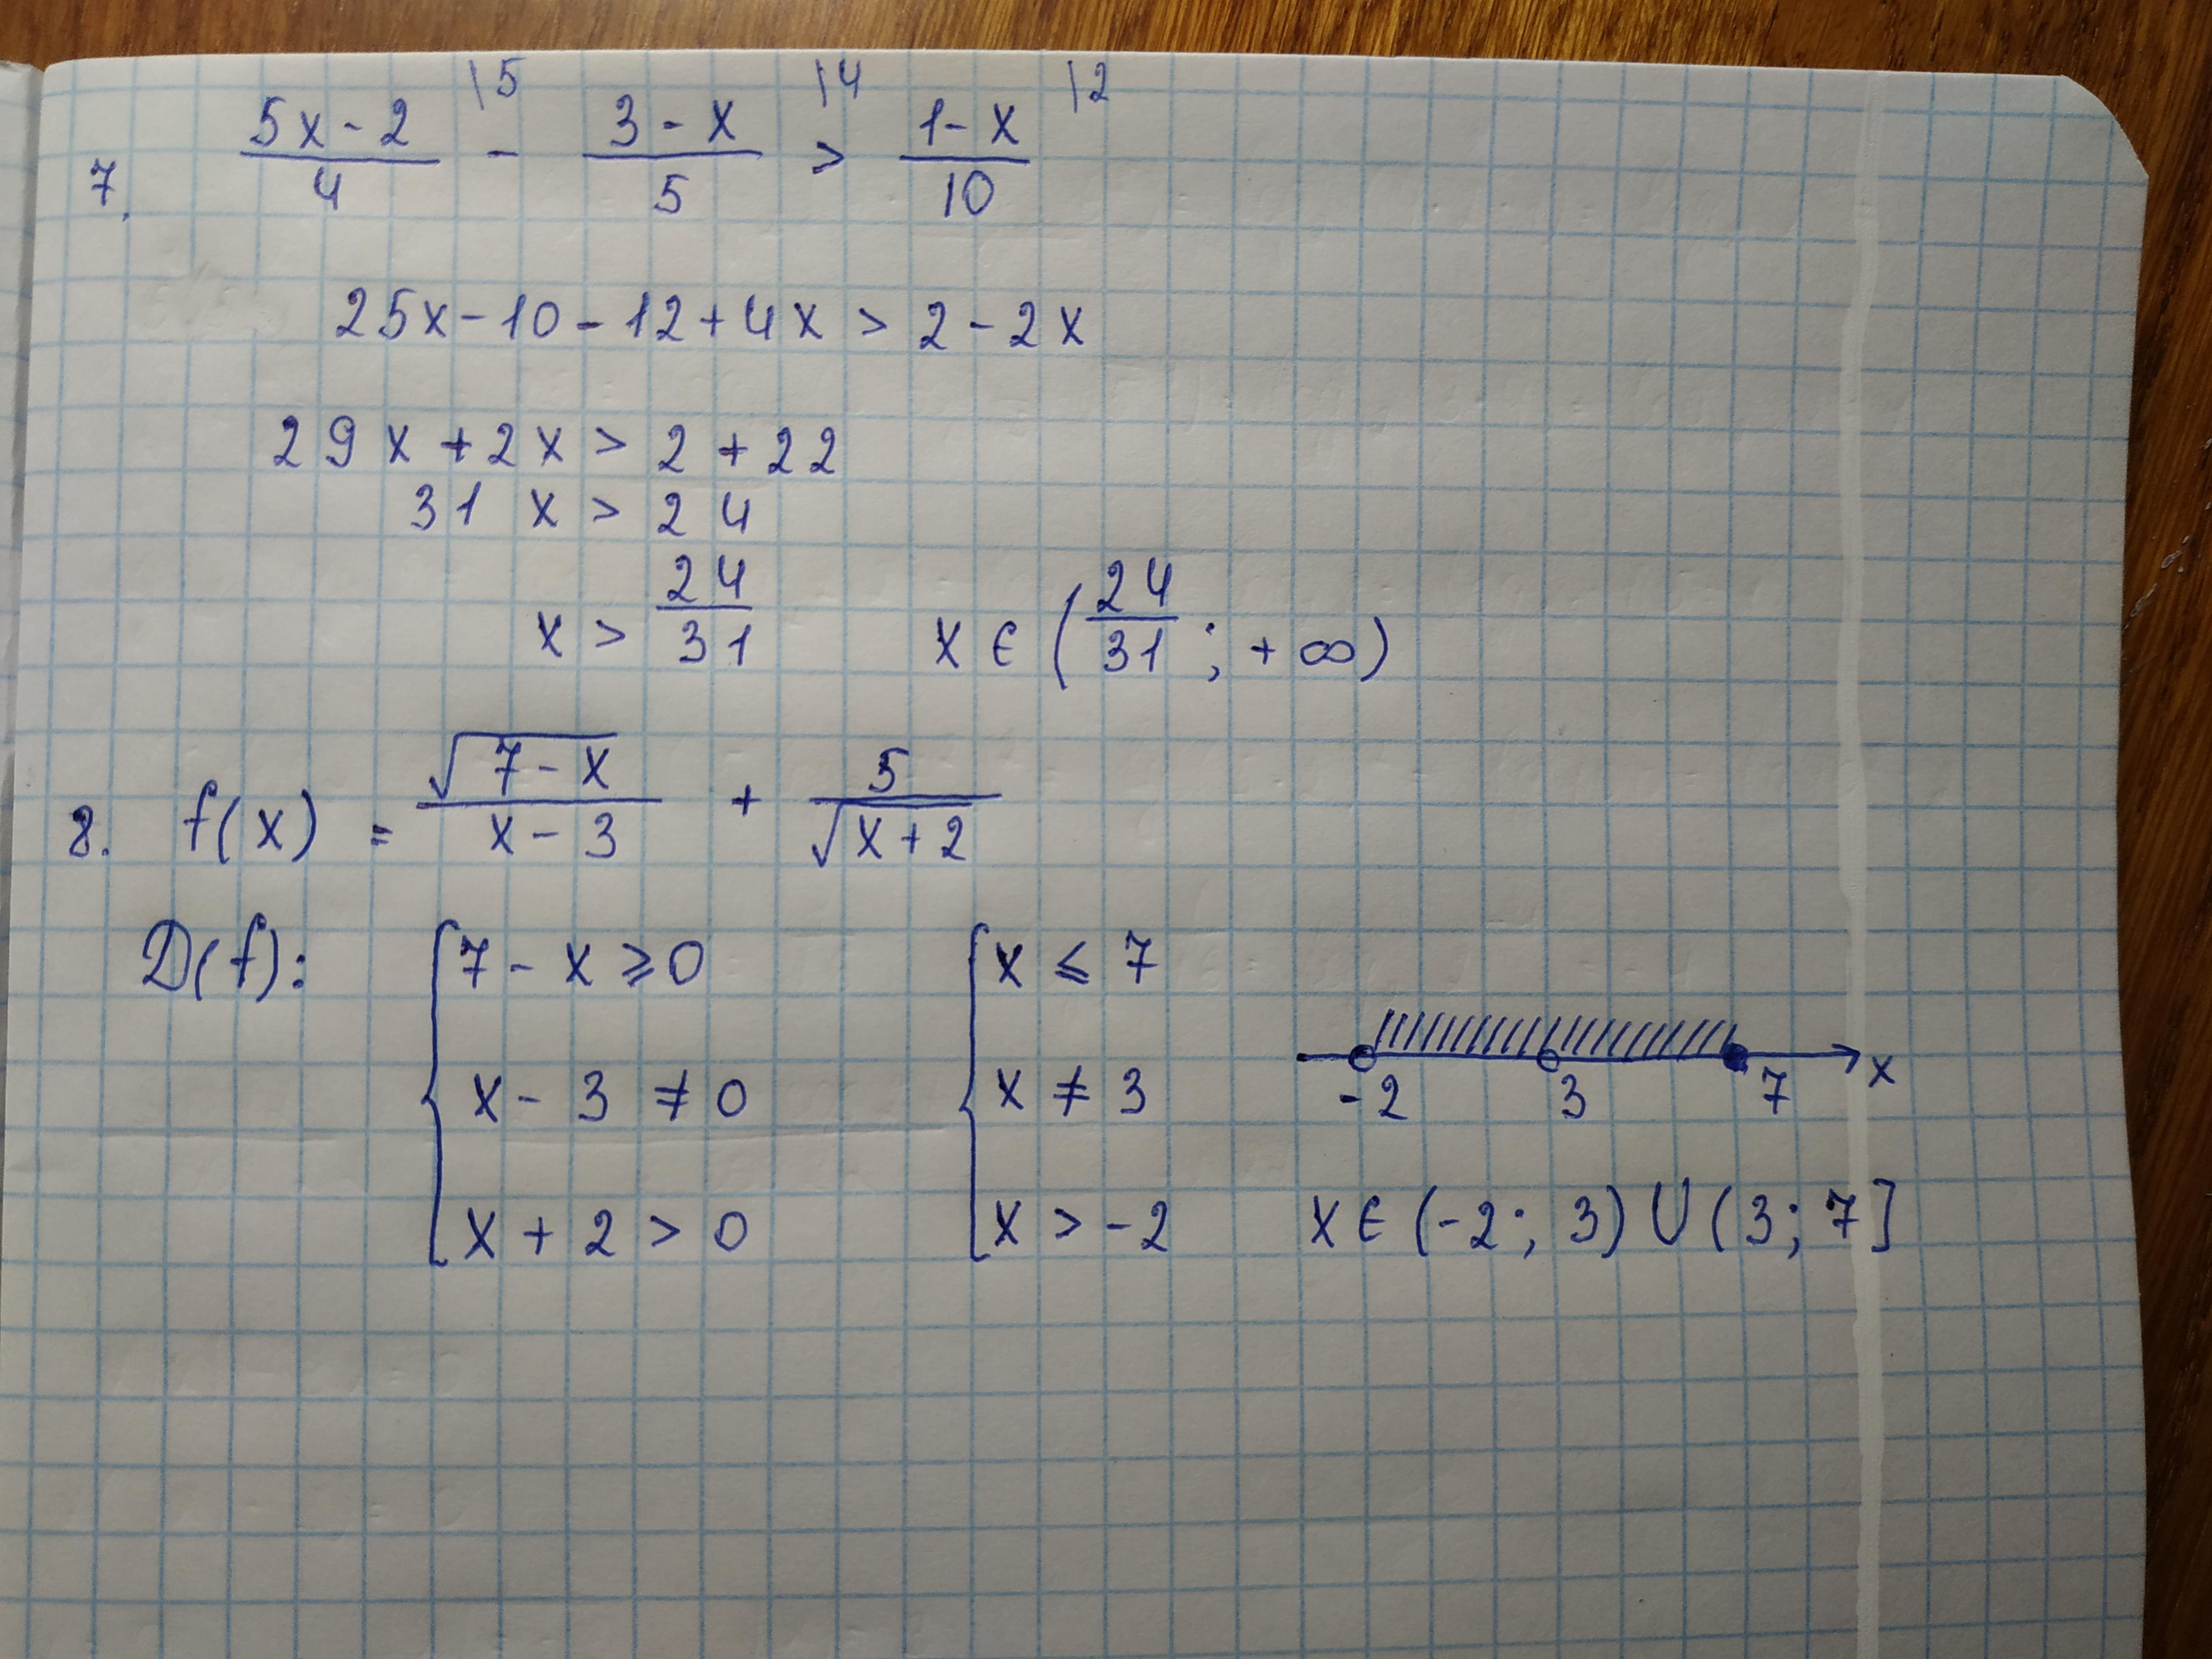 7. (5x-2)/4 |5 - (3-x)/5 |4 > (1-x)/10 |2
25x-10-12+4x > 2-2x
29x+2x > 2+22
31x > 24
x > 24/31   x ∈ (24/31; +∞)
8. f(x) = √(7-x)/(x-3) + 5/√(x+2)
D(f): { 7-x ⩾ 0   { x ⩽ 7
x-3 ≠ 0   x ≠ 3   -2 3 7 x
x+2 > 0   x > -2   x ∈ (-2; 3) ∪ (3; 7]